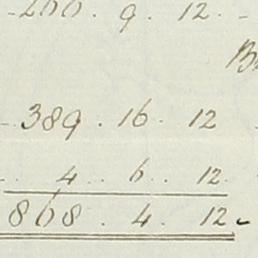 - 200 . 9 . 12 . -
- 389 . 16 . 12
. 4 . . 6 . . 12.
868 . 4 . 12 -